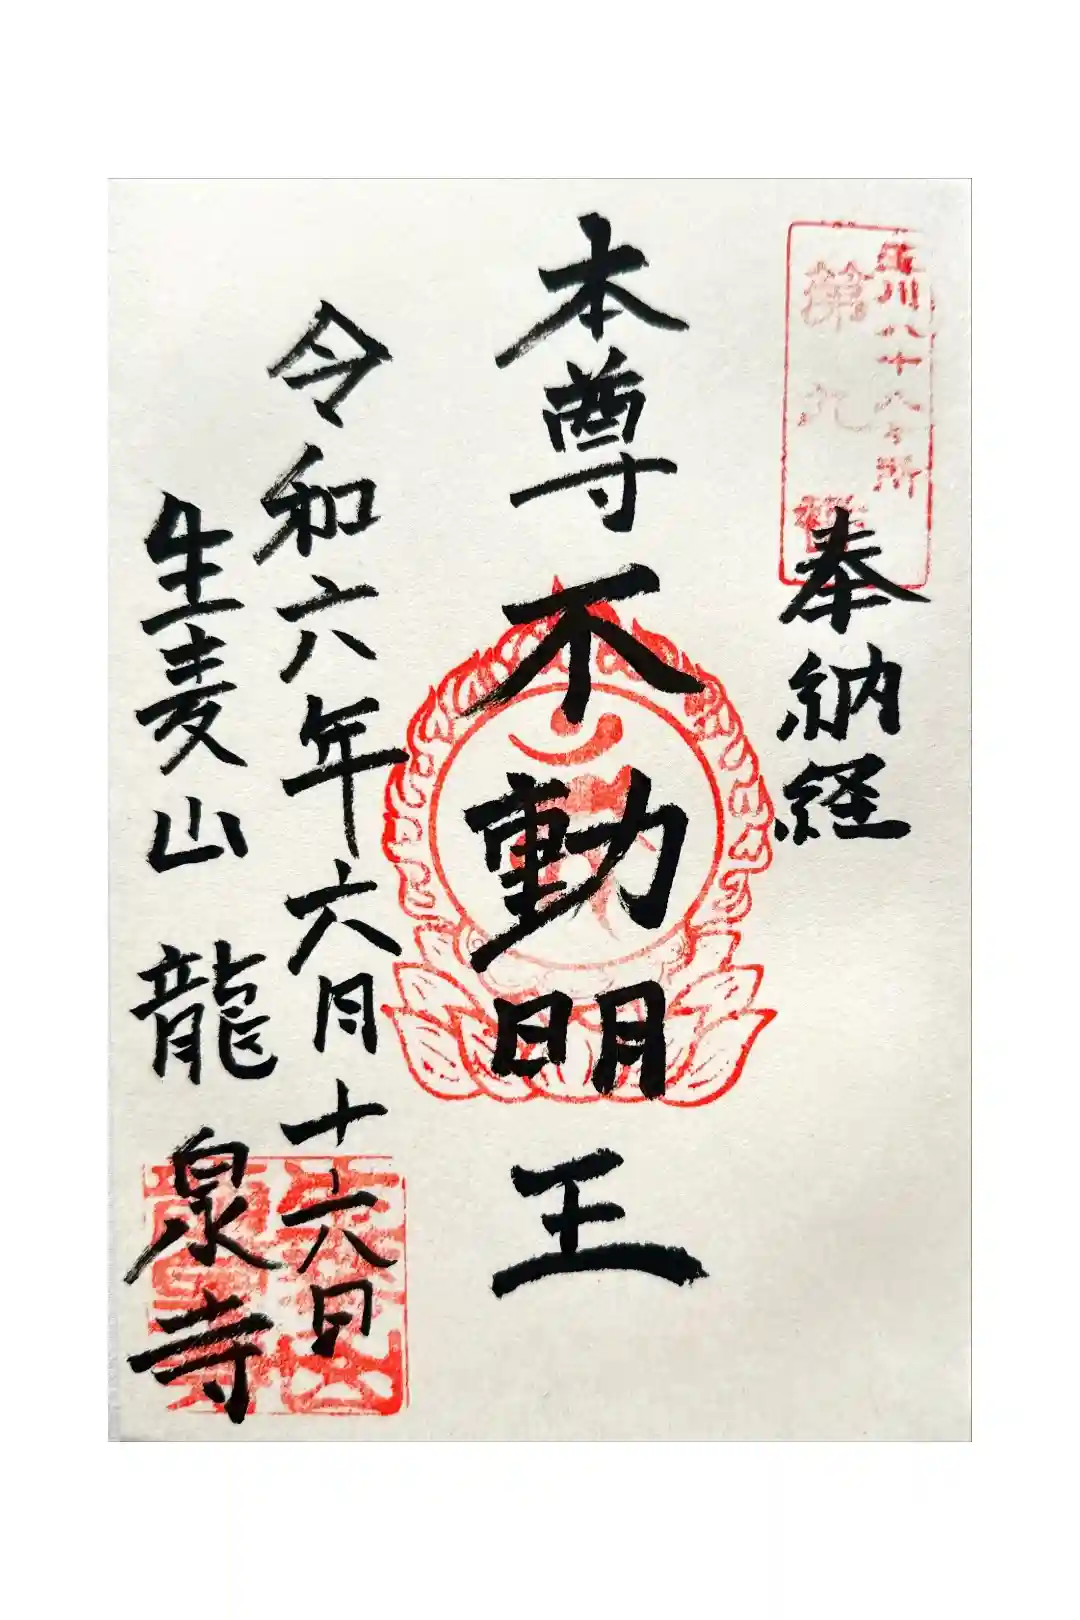 玉川八十八ヶ所
第九番
奉納経
本尊不動明王
令和六年六月十六日
生麦山 龍泉寺